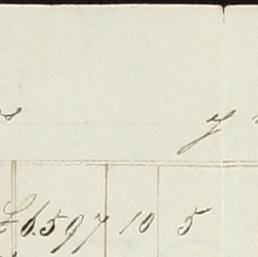 y
£6.597 10 5